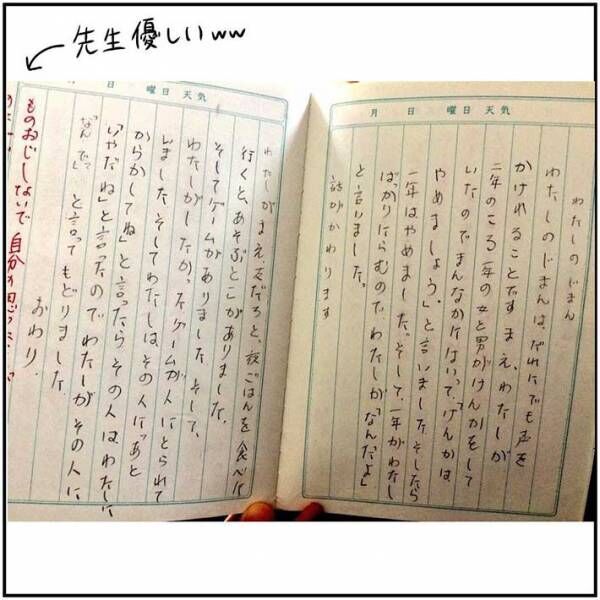 先生優しいww
月 日 曜日 天気
わたしのじまん
わたしのじまんは、だれにでも声を
かけれることです まえ、わたしが
二年のころ一年の女と男がけんかをして
いたのでまんなかにはいって、「けんかは
やめましょう」と言いました。そしたら
一年はやめました。そして、一年がわたし
ばっかりにらむので、わたしが「なんだよ」
と言いました。
話がかわります
日 曜日 天気
わたしがまえ友だちと、夜ごはんを食べに
行くと、あそぶとこがありました。
そしてゲームがありました そして、
わたしがしたかったゲームが人にとられて
しました そしてわたしは、その人に「あと
からかしてね」と言ったらその人はわたしに
「いやだね」と言ったのでわたしがその人に
「なんでっ」と言ってもどりました。
おわり.
ものおじしないで 自分の思った